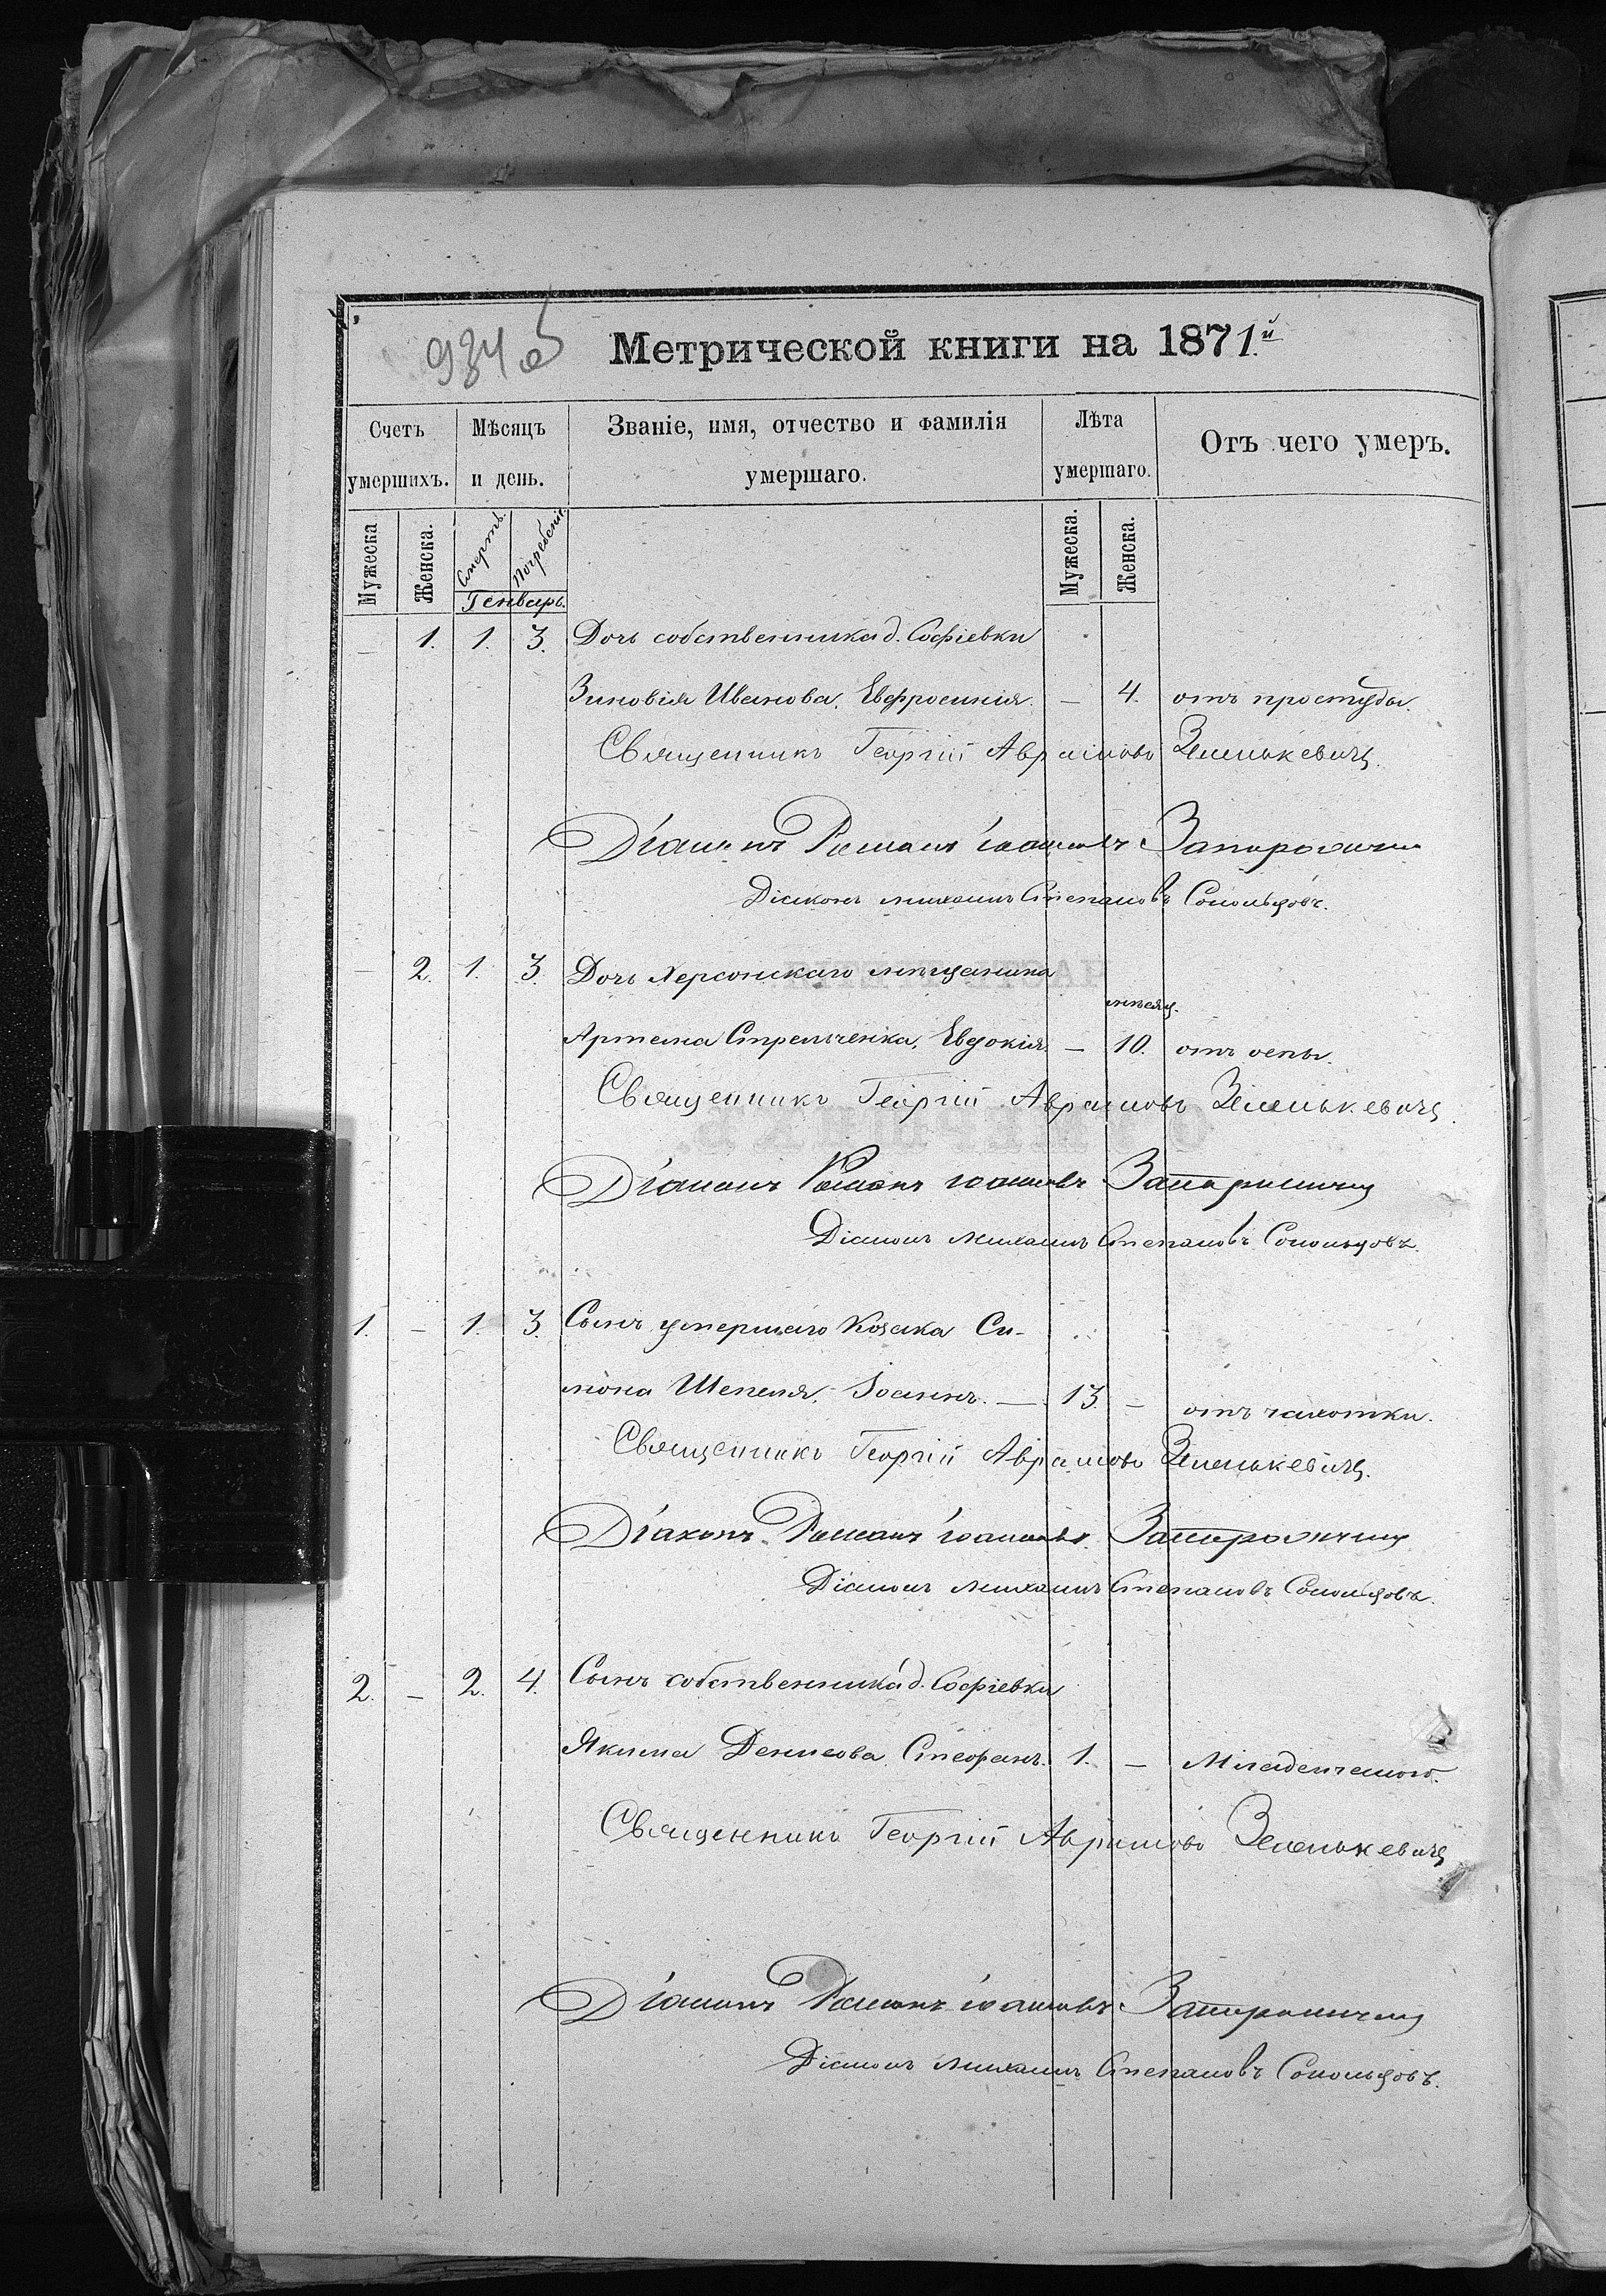 934 об
Метрической книги на 1871.й
Счетъ умершихъ.
Мѣсяцъ и день.
Званіе, имя, отчество и фамилія умершаго.
Лѣта умершаго.
Отъ чего умеръ.
Мужеска
Женска.
Смерть.
Погребенія.
Мужеска.
Женска.
Генварь.
— 1. 1. 3. Дочь собственника д. Софіевки
Зиновія Иванова, Евфросинія. — 4. отъ простуды.
Священникъ Георгій Аврамовъ Зеленькевичъ.
Діаконъ Романъ Іоанновъ
Діаконъ Михаилъ Степановъ
— 2. 1. 3. Дочь Херсонскаго мѣщанина
мѣсяц.
Артема Стрельченка, Евдокія. — 10. отъ оспы.
Священникъ Георгій Аврамовъ Зеленькевичъ.
Діаконъ Романъ Іоанновъ
Діаконъ Михаилъ Степановъ
1. — 1. 3. Сынъ умершаго козака Си-
мона Шепеля, Іоаннъ. — 13. — отъ чахотки.
Священникъ Георгій Аврамовъ Зеленькевичъ.
Діаконъ Романъ Іоанновъ
Діаконъ Михаилъ Степановъ
2. — 2. 4. Сынъ собственника д. Софіевки
Якима Денисова, Стефанъ. 1. — Младенческой.
Священникъ Георгій Аврамовъ Зеленькевичъ
Діаконъ Романъ Іоанновъ
Діаконъ Михаилъ Степановъ